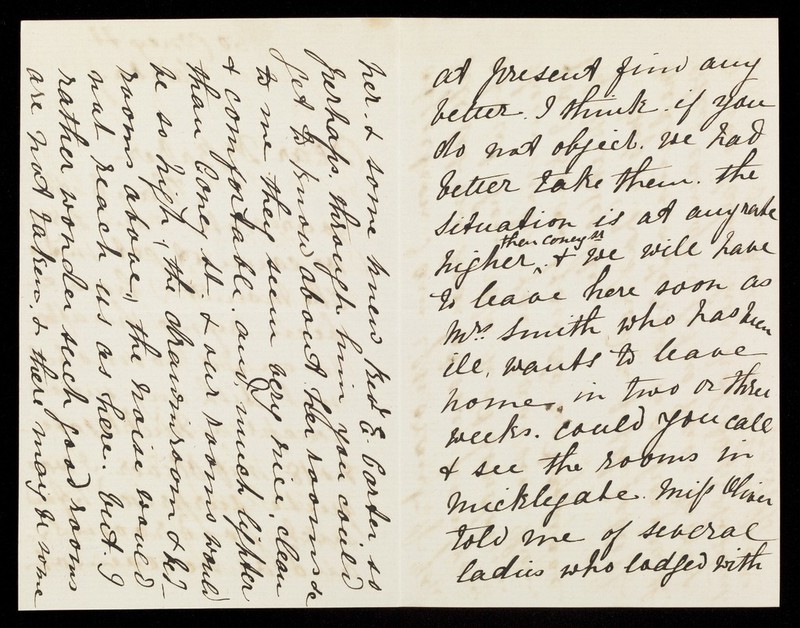 at present find any
better. I think if you
do not object. we had
better take them. the
situation is at anyrate
then Coney St
higher, & we will have
to leave here soon as
Mrs Smith who has been
ill, wants to leave
home, in two or three
weeks. could you call
& see the rooms in
Micklegate. Miss Oliver
told me of several
ladies who lodged with
her. & some knew Revd E. Carter so
perhaps through him you could
get to know about her rooms &c
to me they seem very nice, clean
& comfortable. and much lighter
than Coney St. & our rooms would
be so high, the drawinroom & bd-
rooms above, the noise would
not reach us as here. but. I
rather wonder such good rooms
are not taken, & there may be some